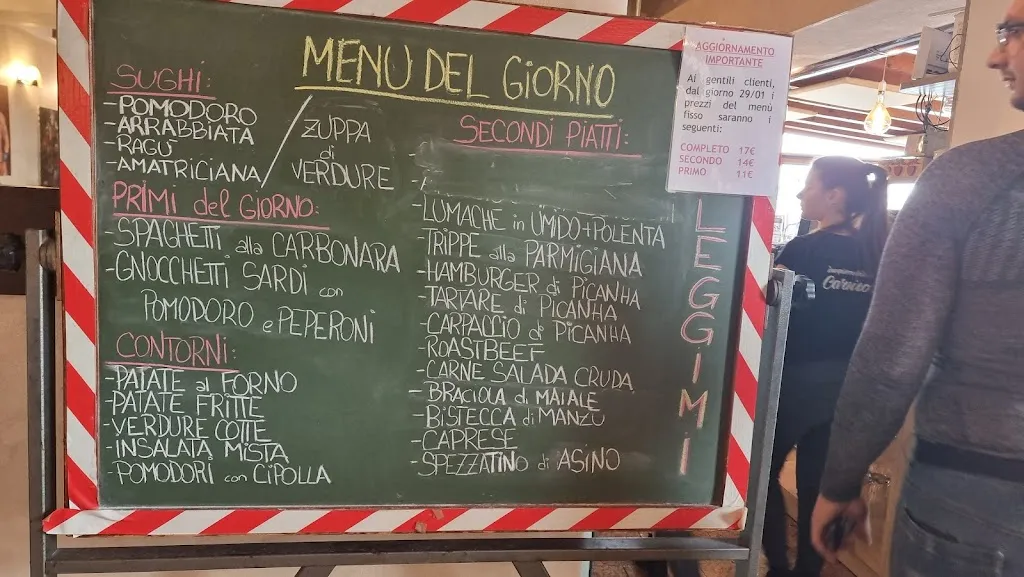 MENU DEL GIORNO
SUGHI:
-POMODORO
-ARRABBIATA
-RAGÙ
-AMATRICIANA
/ ZUPPA
di
VERDURE
PRIMI del GIORNO:
-SPAGHETTI alla CARBONARA
-GNOCCHETTI SARDI con
POMODORO e PEPERONI
CONTORNI:
-PATATE al FORNO
-PATATE FRITTE
-VERDURE COTTE
-INSALATA MISTA
-POMODORI con CIPOLLA
SECONDI PIATTI:
-LUMACHE in UMIDO+POLENTA
-TRIPPE alla PARMIGIANA
-HAMBURGER di PICANHA
-TARTARE di PICANHA
-CARPACCIO di PICANHA
-ROASTBEEF
-CARNE SALADA CRUDA
-BRACIOLA di MAIALE
-BISTECCA di MANZO
-CAPRESE
-SPEZZATINO di ASINO
LEGGIMI
AGGIORNAMENTO
IMPORTANTE
Ai gentili clienti,
dal giorno 29/01 i
prezzi del menù
fisso saranno i
seguenti:
COMPLETO 17€
SECONDO 14€
PRIMO 11€